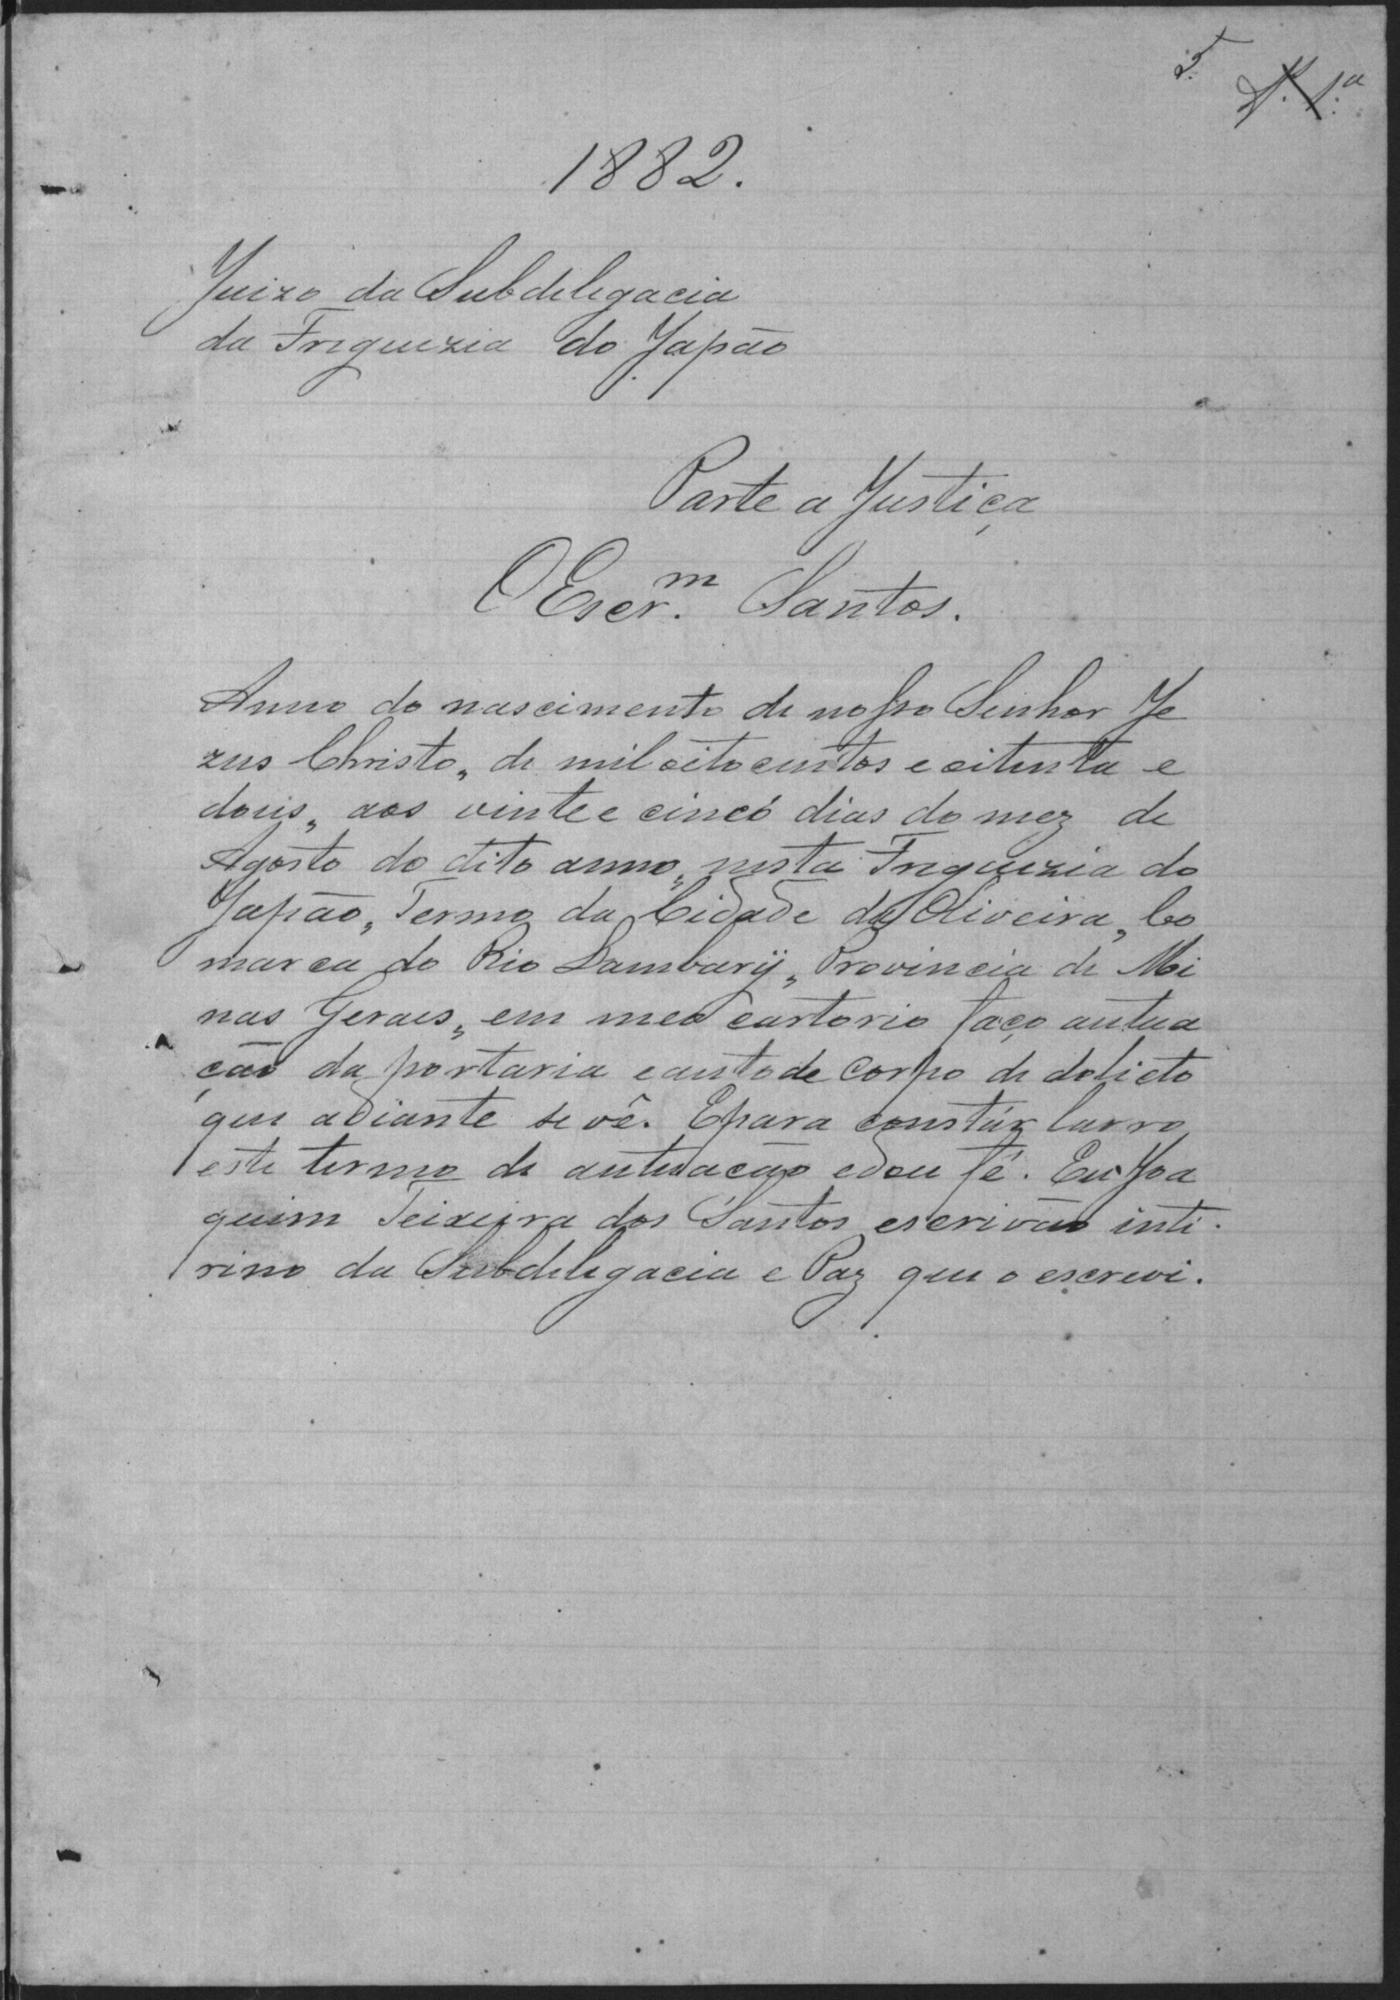 5
1882.
Juizo da Subdelegacia
da Freguezia do Japão
Parte a Justiça
O Escr.m Santos.
Anno do nascimento de nosso Senhor Je
zus Christo, de mil oito centos e oitenta e
dous, aos vinte e cinco dias do mez de
Agosto do dito anno, nesta Freguezia do
Japão, Termo da Cidade da Oliveira, Co
marca do Rio Lambarÿ, Provincia de Mi
nas Geraes, em meo cartorio faço autua
ção da portaria e auto de corpo de delicto
que adiante se vê. E para constár lavro
este termo de autuação e dou fé. Eu Joa
quim Teixeira dos Santos escrivão inte-
rino da Subdelegacia e Paz que o escrevi.